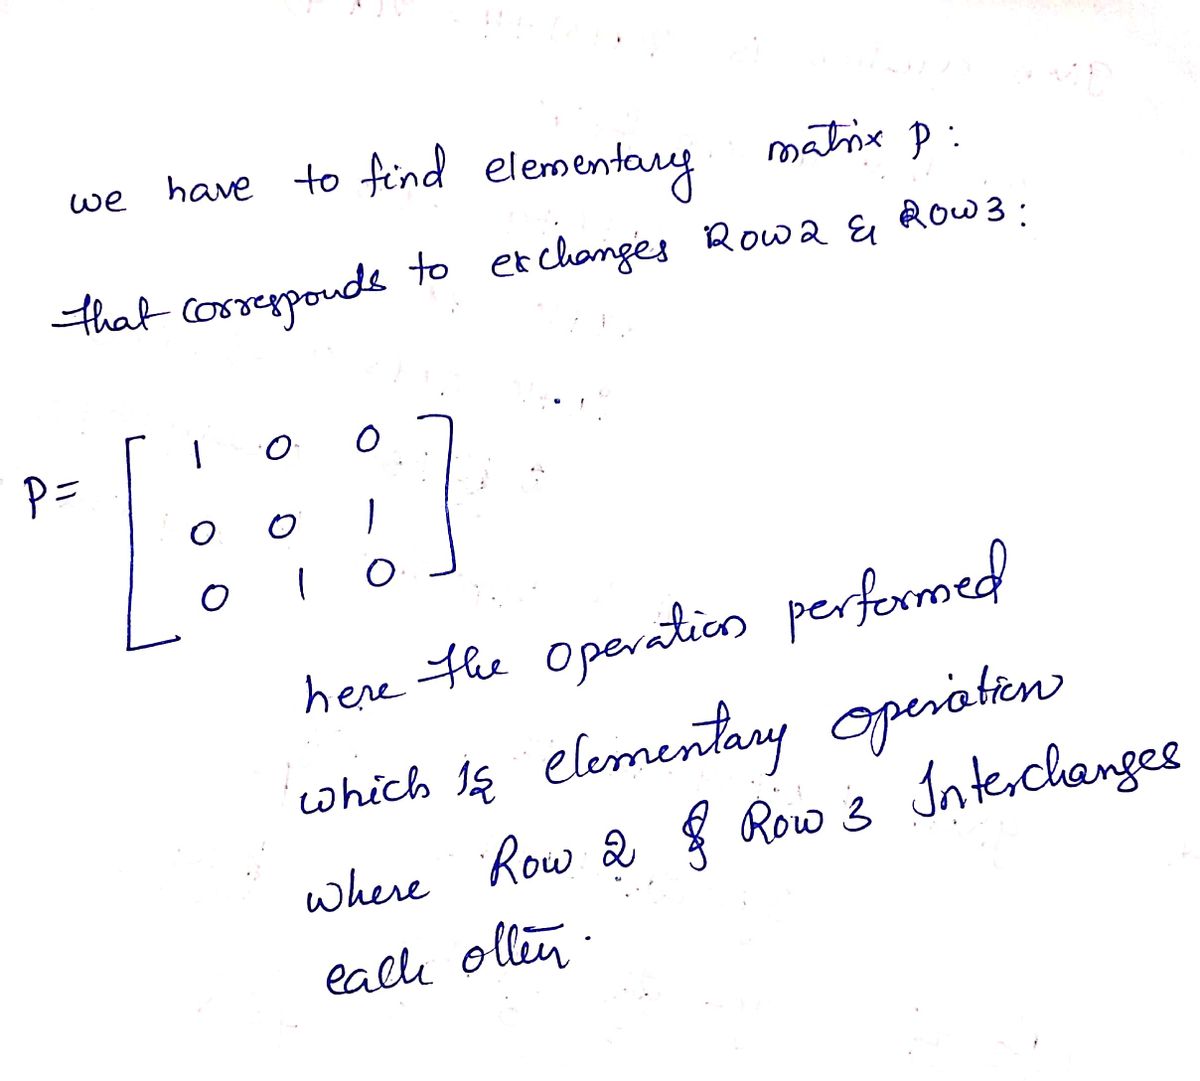 we have to find elementary matrix P:
that corresponds to exchanges Row 2 & Row 3:
P= [ 1 0 0
0 0 1
0 1 0 ]
here the operation performed
which is elementary operation
where Row 2 & Row 3 Interchanges
each other.